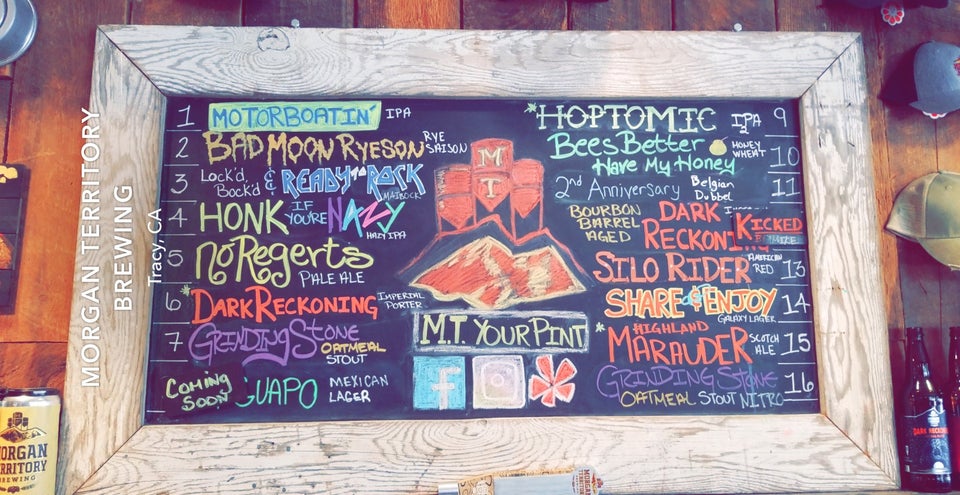 MORGAN TERRITORY
BREWING
Tracy, CA
1 MOTORBOATIN' IPA
2 BAD MOON RYESON RYE SAISON
3 LOCK'D & BOCK'D READY TO ROCK MAIBOCK
4 HONK IF YOU'RE NAZY HAZY IPA
5 NO REGERTS PALE ALE
6 *DARK RECKONING IMPERIAL PORTER
7 GRINDING STONE OATMEAL STOUT
COMING SOON GUAPO MEXICAN LAGER
M T
M.T. YOUR PINT
f
*HOPTOMIC IPA 9
Bees Better Have My Honey HONEY WHEAT 10
2nd Anniversary Belgian Dubbel 11
BOURBON BARREL AGED DARK RECKONI KICKED
SILO RIDER AMERICAN RED 13
SHARE & ENJOY GALAXY LAGER 14
*HIGHLAND MARAUDER SCOTCH ALE 15
GRINDING STONE OATMEAL STOUT NITRO 16
MORGAN
TERRITORY
BREWING
DARK RECKONING
MORGAN